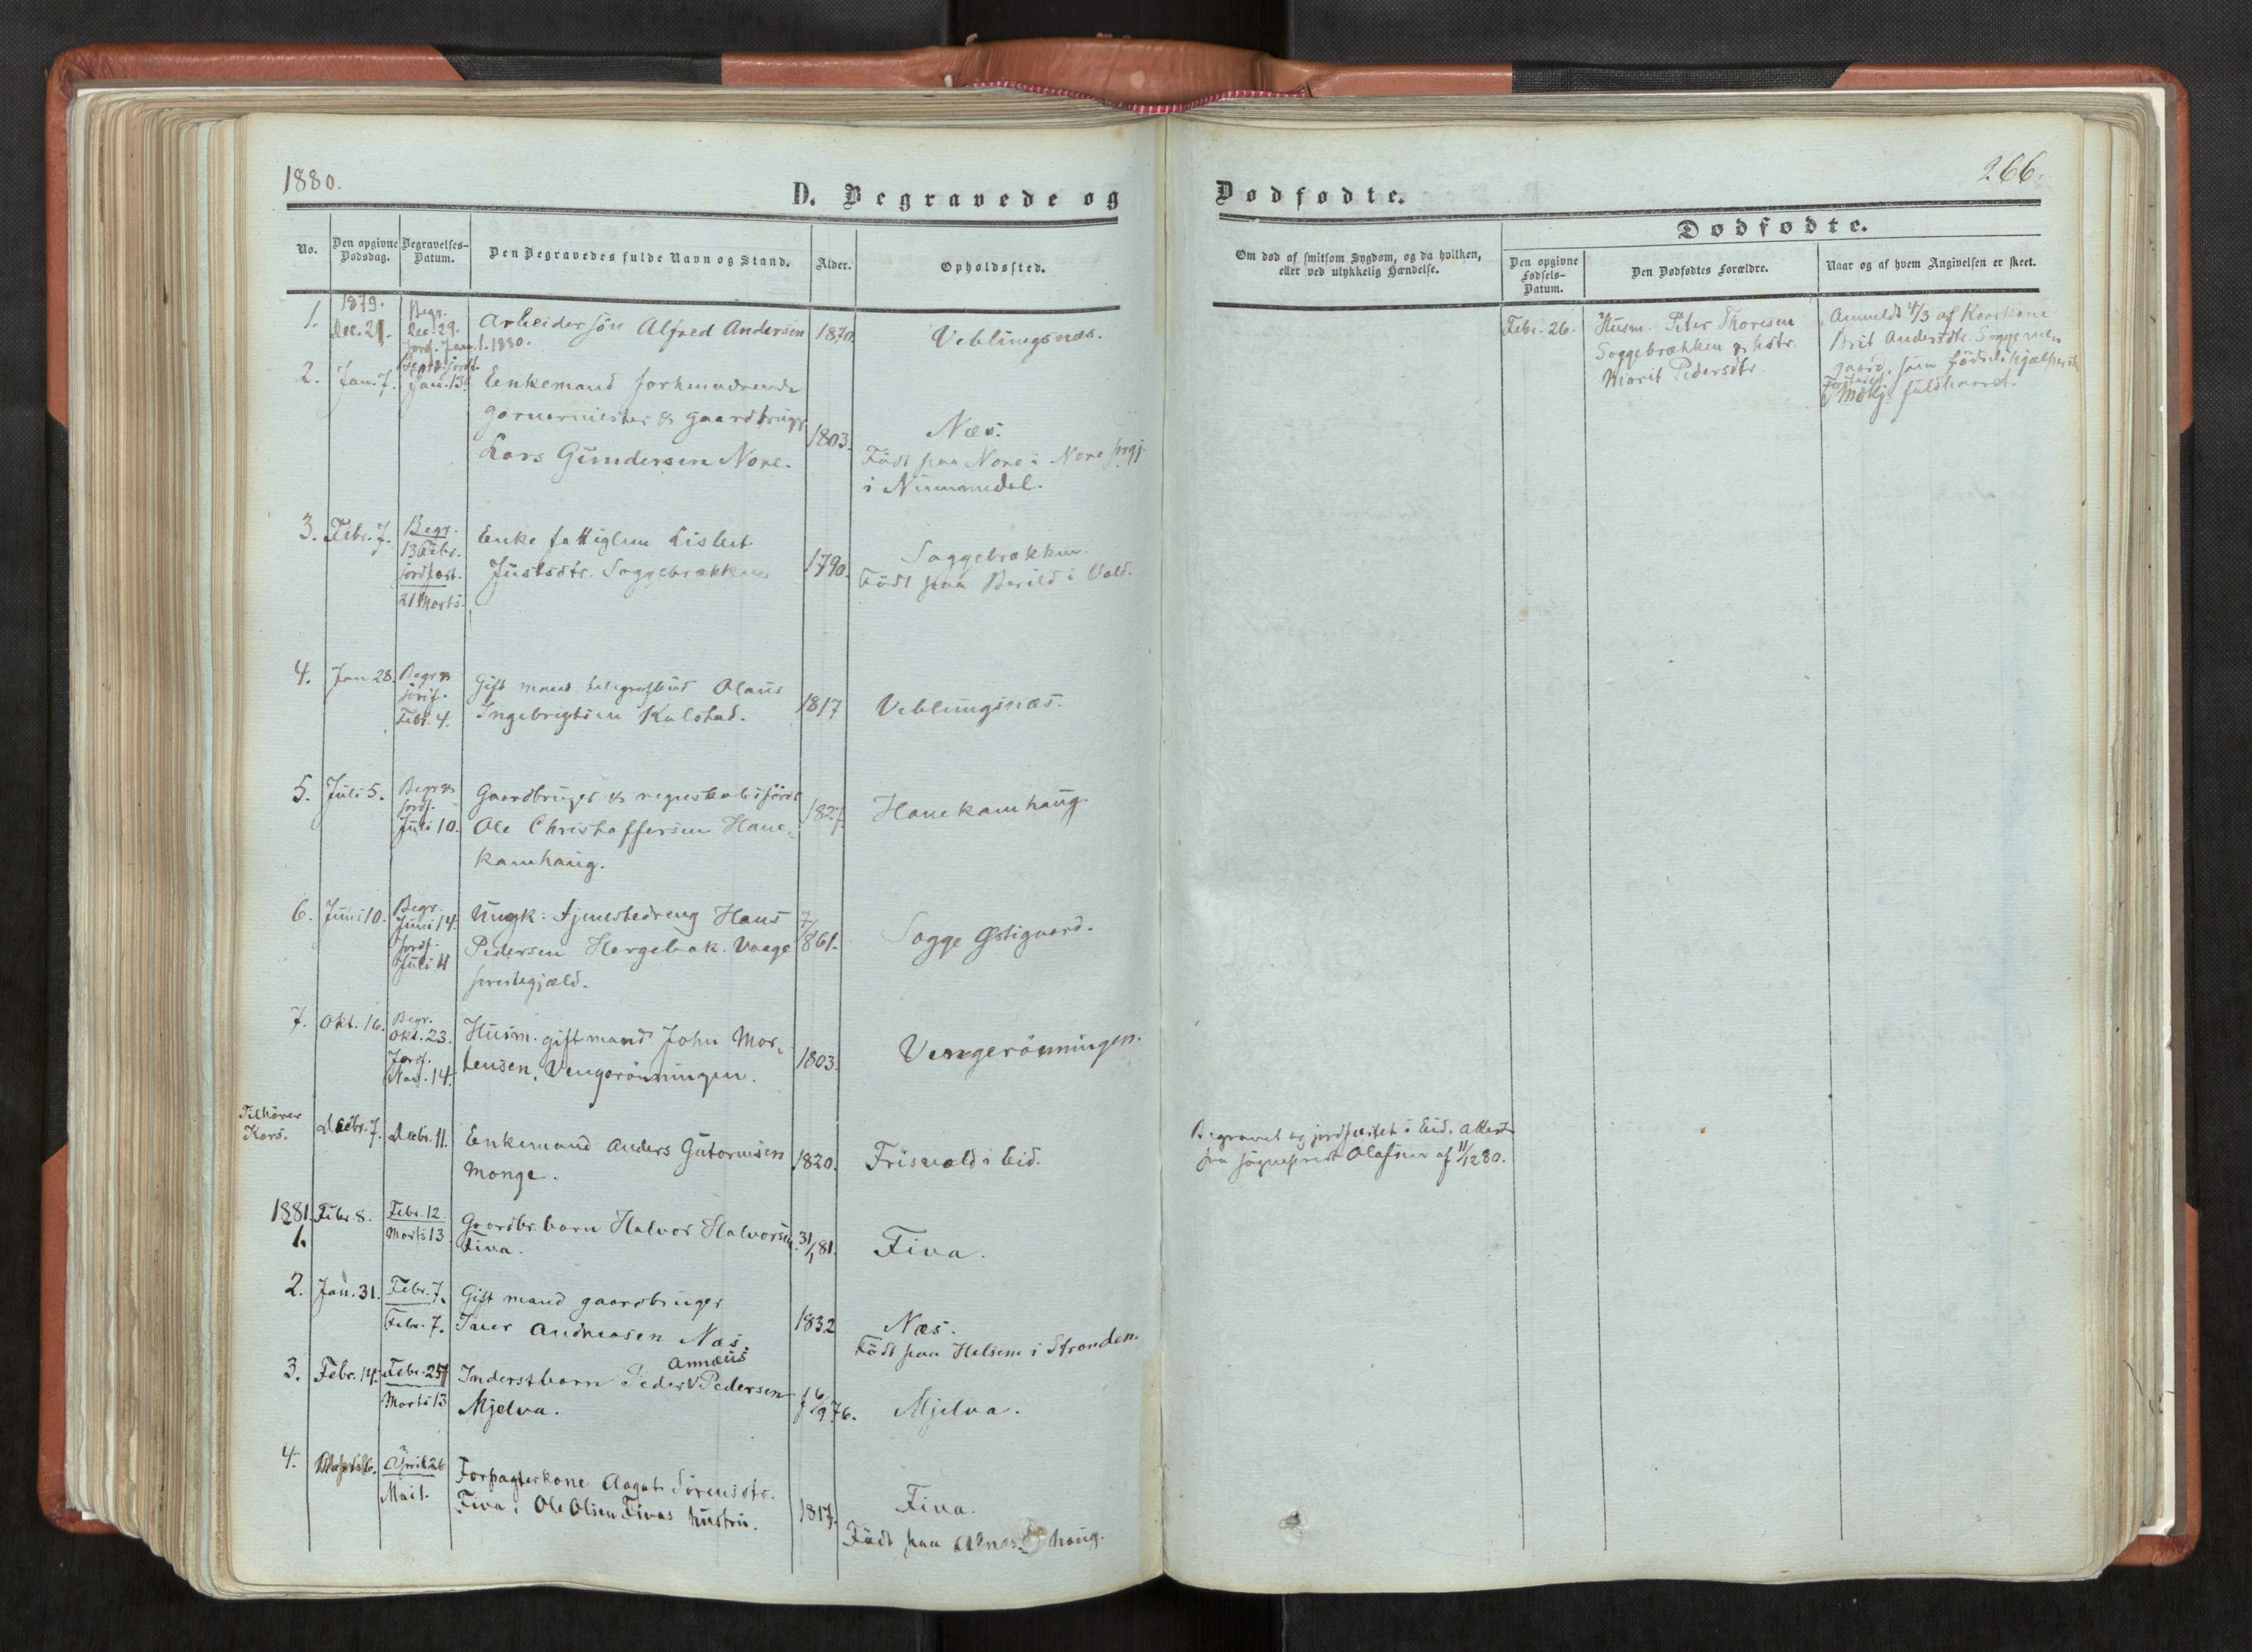 1880.
D. Begravede og
No.
Den opgivne Dødsdag.
Begravelses-Datum.
Den Begravedes fulde Navn og Stand.
Alder.
Opholdssted.
1.
1879.
Dec. 21.
Begr.
Dec. 29.
Jordf. Jan. 1. 1880.
Arbeidersøn Alfred Andersen
1870.
Veblungsnæs.
2.
Jan. 7.
Jan. 13.
Enkemand forhenværende
garvermester & gaardbruger
Lars Gundersen Nore.
1803.
Næs.
Født paa Nore i Nore prgj.
i Nummedal.
3.
Febr. 7.
Begr.
13 Febr.
jordfæst.
21 Marts.
Enke fattiglem Lisbet
Justsdtr. Soggebrækken
1790.
Soggebrækken.
Født paa Berild i Vold.
4.
Jan 28.
Begr &
jordf.
Febr. 4.
Gift mand telegrafbud Olaus
Ingebrigtsen Kalstad.
1817
Veblungsnæs.
5.
Juli 5.
Begr &
jordf.
Juli 10.
Gaardbruger & regnskabsfører
Ole Christoffersen Hane-
kamhaug.
1827.
Hanekamhaug.
6.
Juni 10.
Begr.
Juni 14.
Jordf.
Juli 11
Ungk: tjenestedreng Hans
Pedersen Horgebak. Vaage
prestegjæld.
7/
861.
Sogge Østigaard.
7.
Okt. 16.
Begr.
Okt. 23.
Jordf.
Nov. 14.
Husm. gift mand John Mor-
tensen, Vengerønningen.
1803.
Vengerønningen.
Tilhører
Kors.
Decbr. 7.
Decbr. 11.
Enkemand Anders Gutormsen
Monge.
1820.
Frisvold i Eid.
1881.
1.
Febr 8.
Febr. 12
Marts 13
Gaardbr. barn Halvor Halvorsen
Fiva.
31/1 81.
Fiva.
2.
Jan. 31.
Febr. 7.
Febr. 7.
Gift mand gaardbruger
Iver Andreasen Næs.
1832
Næs.
Født paa Helsem i Stranden.
3.
Febr. 14.
Febr. 25
Marts 13
Annæus
Inderstbarn Peder V Pedersen
Mjelva.
f 6/9 76.
Mjelva.
4.
April 26
Mai 1.
Forpagterkone Aagot Sørensdtr.
Fiva, Ole Olsen Fivas hustru.
1817.
Fiva.
Født paa Alnes haug.
266.
Dødfødte.
Om død af smitsom Sygdom, og da hvilken,
eller ved ulykkelig Hændelse.
Dødfødte.
Den opgivne
Fødsels-
Datum.
Den Dødfødtes Forældre.
Naar og af hvem Angivelsen er skeet.
Febr. 26.
Husm. Peter Thoresen
Soggebrækken & hstr.
Marit Pedersdtr.
Anmeldt 4/3 af Kaarkone
Brit Andersdtr. Sogge
fødselshjælperske
Mdkj. fuldbaaret.
Begravet og jordfæstet i Eid. Attest
fra sogneprest Olafsen af 11/12 80.